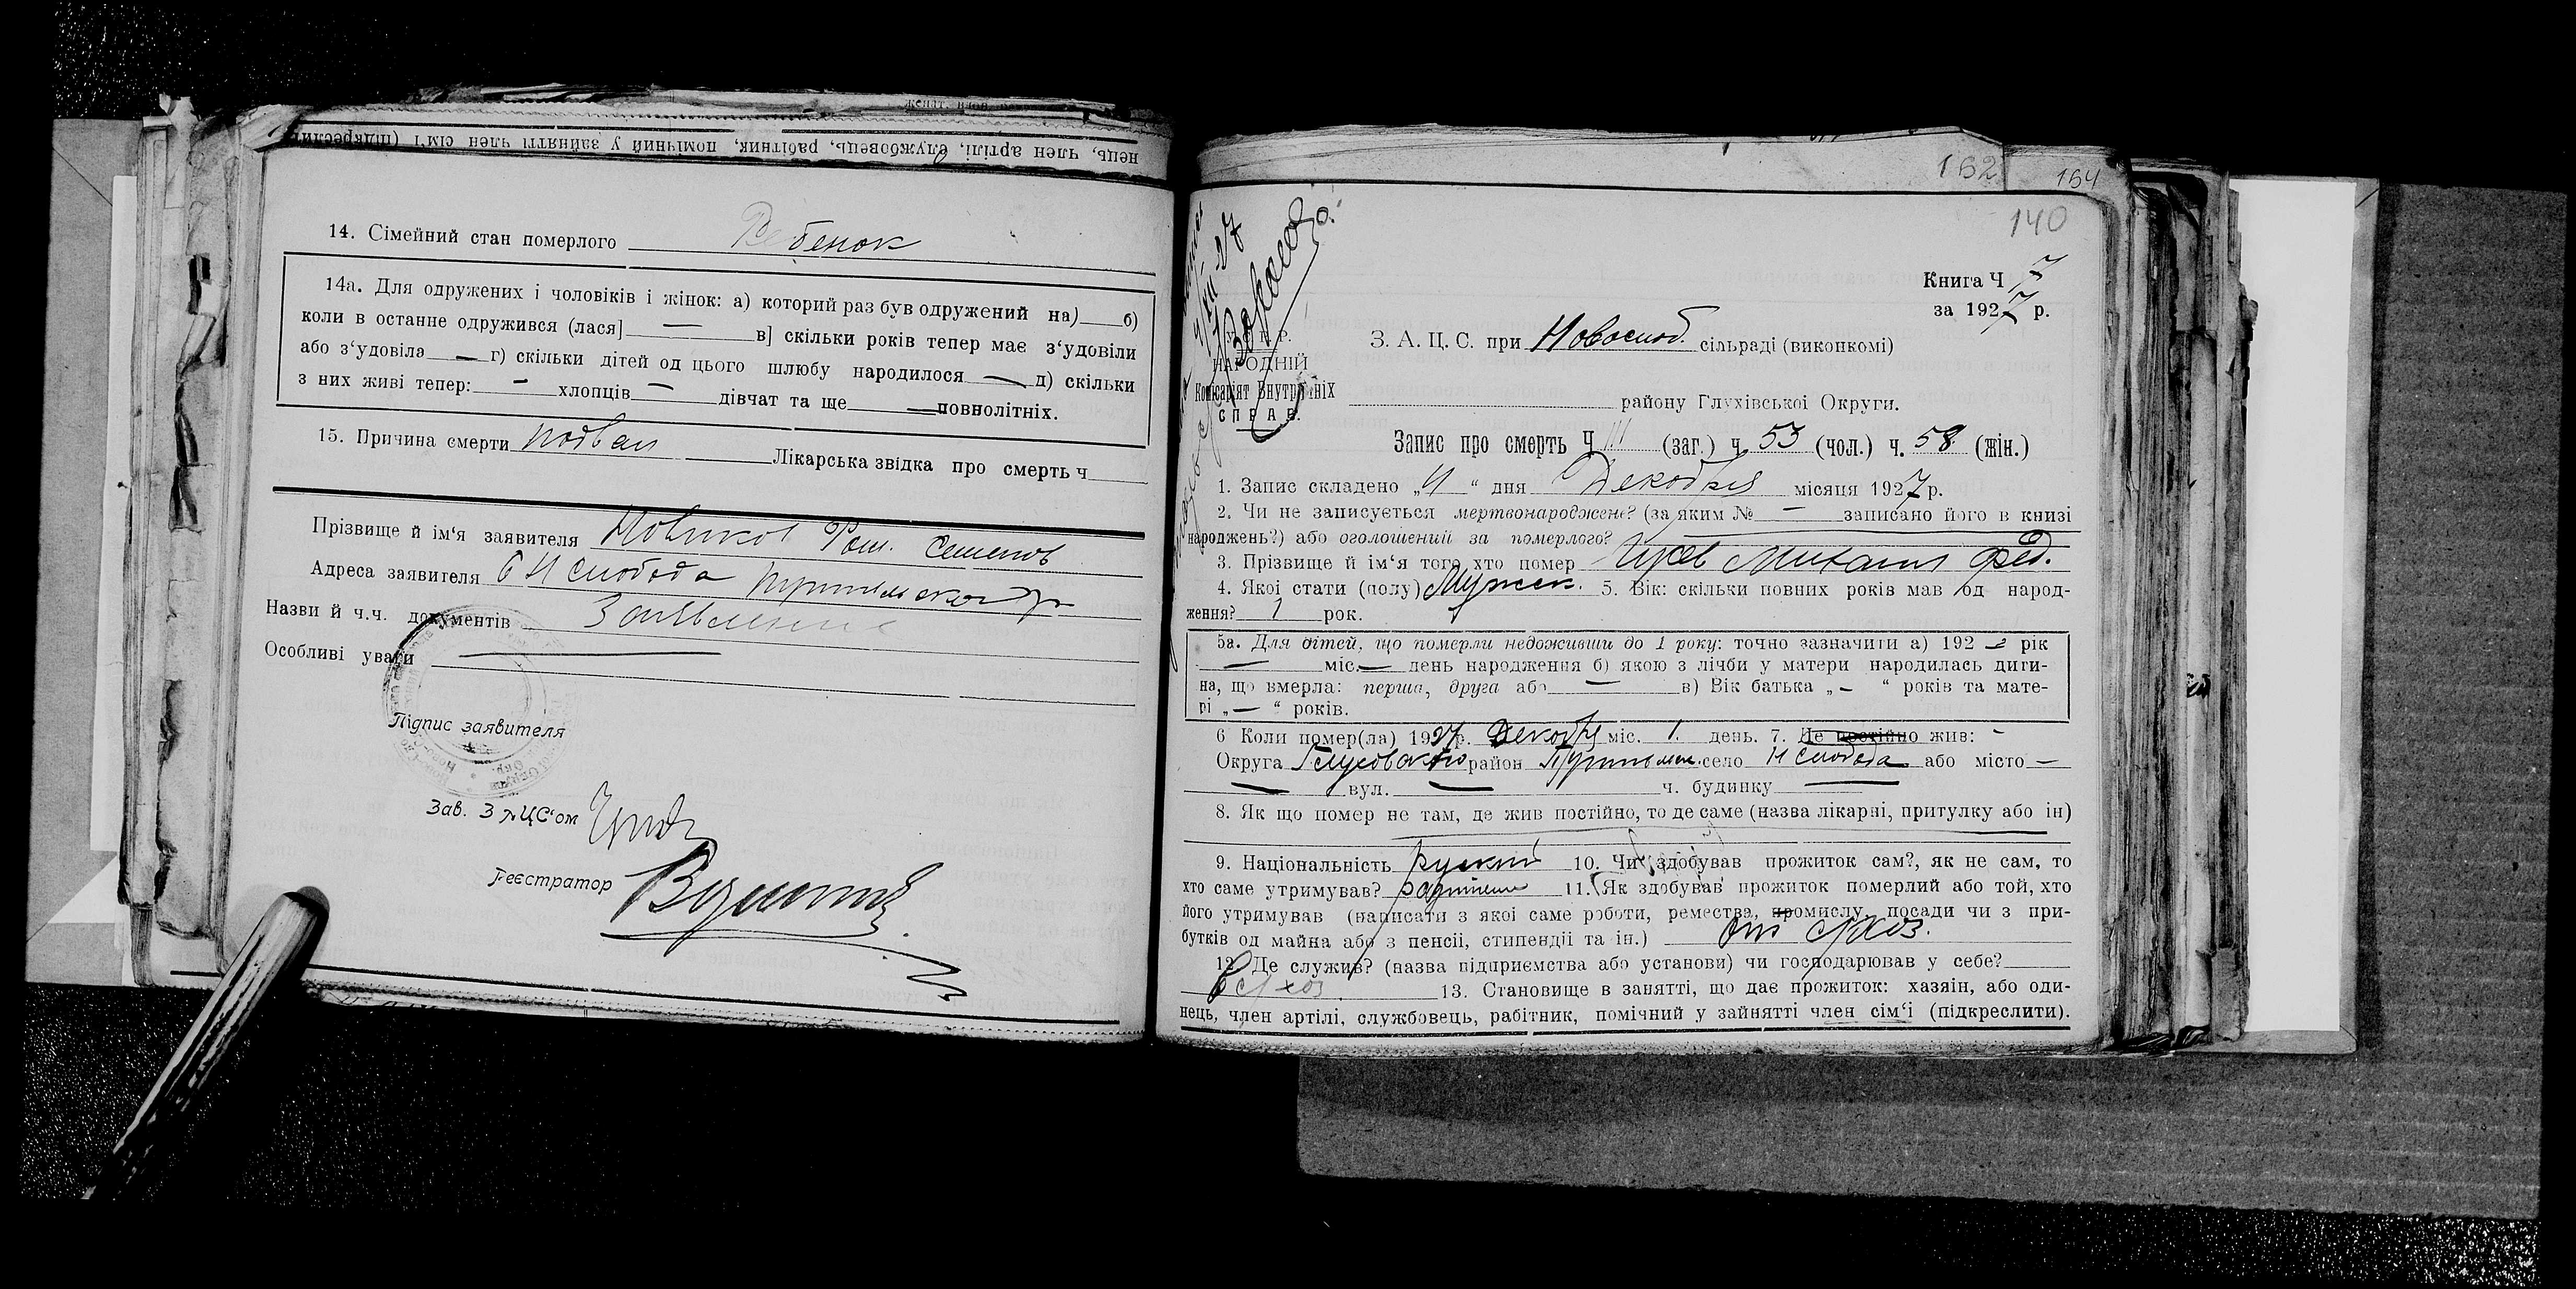 нець, член артілі, службовець, рабітник, помічний у зайнятті член сім'ї (підкреслить
14. Сімейний стан померлого Ребенок
14а. Для одружених і чоловіків і жінок: а) которий раз був одружений на) б)
коли в останне одружився (лася] — в] скільки років тепер має з'удовіли
або з'удовіла — г) скільки дітей од цього шлюбу народилося — д) скільки
з них живі тепер: — хлопців — дівчат та ще — повнолітніх.
15. Причина смерти Лікарська звідка про смерть ч
Прізвище й ім'я заявителя Новиков Ром. Семенов
Адреса заявителя С Н Слобода
Назви й ч.ч. документів Заявление
Особливі уваги —
Підпис заявителя
Зав. ЗАЦС'ом
Реєстратор
162
164
140
Книга Ч 7
за 1927 р.
У.С.Р.Р.
НАРОДНІЙ
Комісаріят Внутрішніх
СПРАВ.
З. А. Ц. С. при Новослоб. сільраді (виконкомі)
району Глухівської Округи.
Запис про смерть Ч 111 (заг.) ч. 53 (чол.) ч. 58 (жін.)
1. Запис складено „4“ дня Декабря місяця 1927 р.
2. Чи не записується мертвонароджене? (за яким № — записано його в книзі
народжень?) або оголошений за померлого? —
3. Прізвище й ім'я того хто помер Михаил Фед.
4. Якої стати (полу) Мужск. 5. Вік: скільки повних років мав од народ-
ження? 1 рок.
5а. Для дітей, що померли недоживши до 1 року: точно зазначити а) 192 — рік
— міс. — день народження б) якою з лічби у матери народилась дити-
на, що вмерла: перша, друга або — в) Вік батька „ — “ років та мате-
рі „ — “ років.
6 Коли помер(ла) 1927р. Декабря міс. 1. день. 7. Де постійно жив: -
Округа Глуховского район Путивльск. село Н Слобода або місто —
— вул. — ч. будинку —
8. Як що помер не там, де жив постійно, то де саме (назва лікарні, притулку або ін)
9. Національність руский 10. Чи здобував прожиток сам?, як не сам, то
хто саме утримував? родители 11. Як здобував прожиток померлий або той, хто
його утримував (написати з якої саме роботи, ремества, промислу, посади чи з при-
бутків од майна або з пенсії, стипендії та ін.) от с/хоз.
12. Де служив? (назва підприємства або установи) чи господарював у себе?
В с/хоз 13. Становище в занятті, що дає прожиток: хазяїн, або оди-
нець, член артілі, службовець, рабітник, помічний у зайнятті член сім'ї (підкреслити).